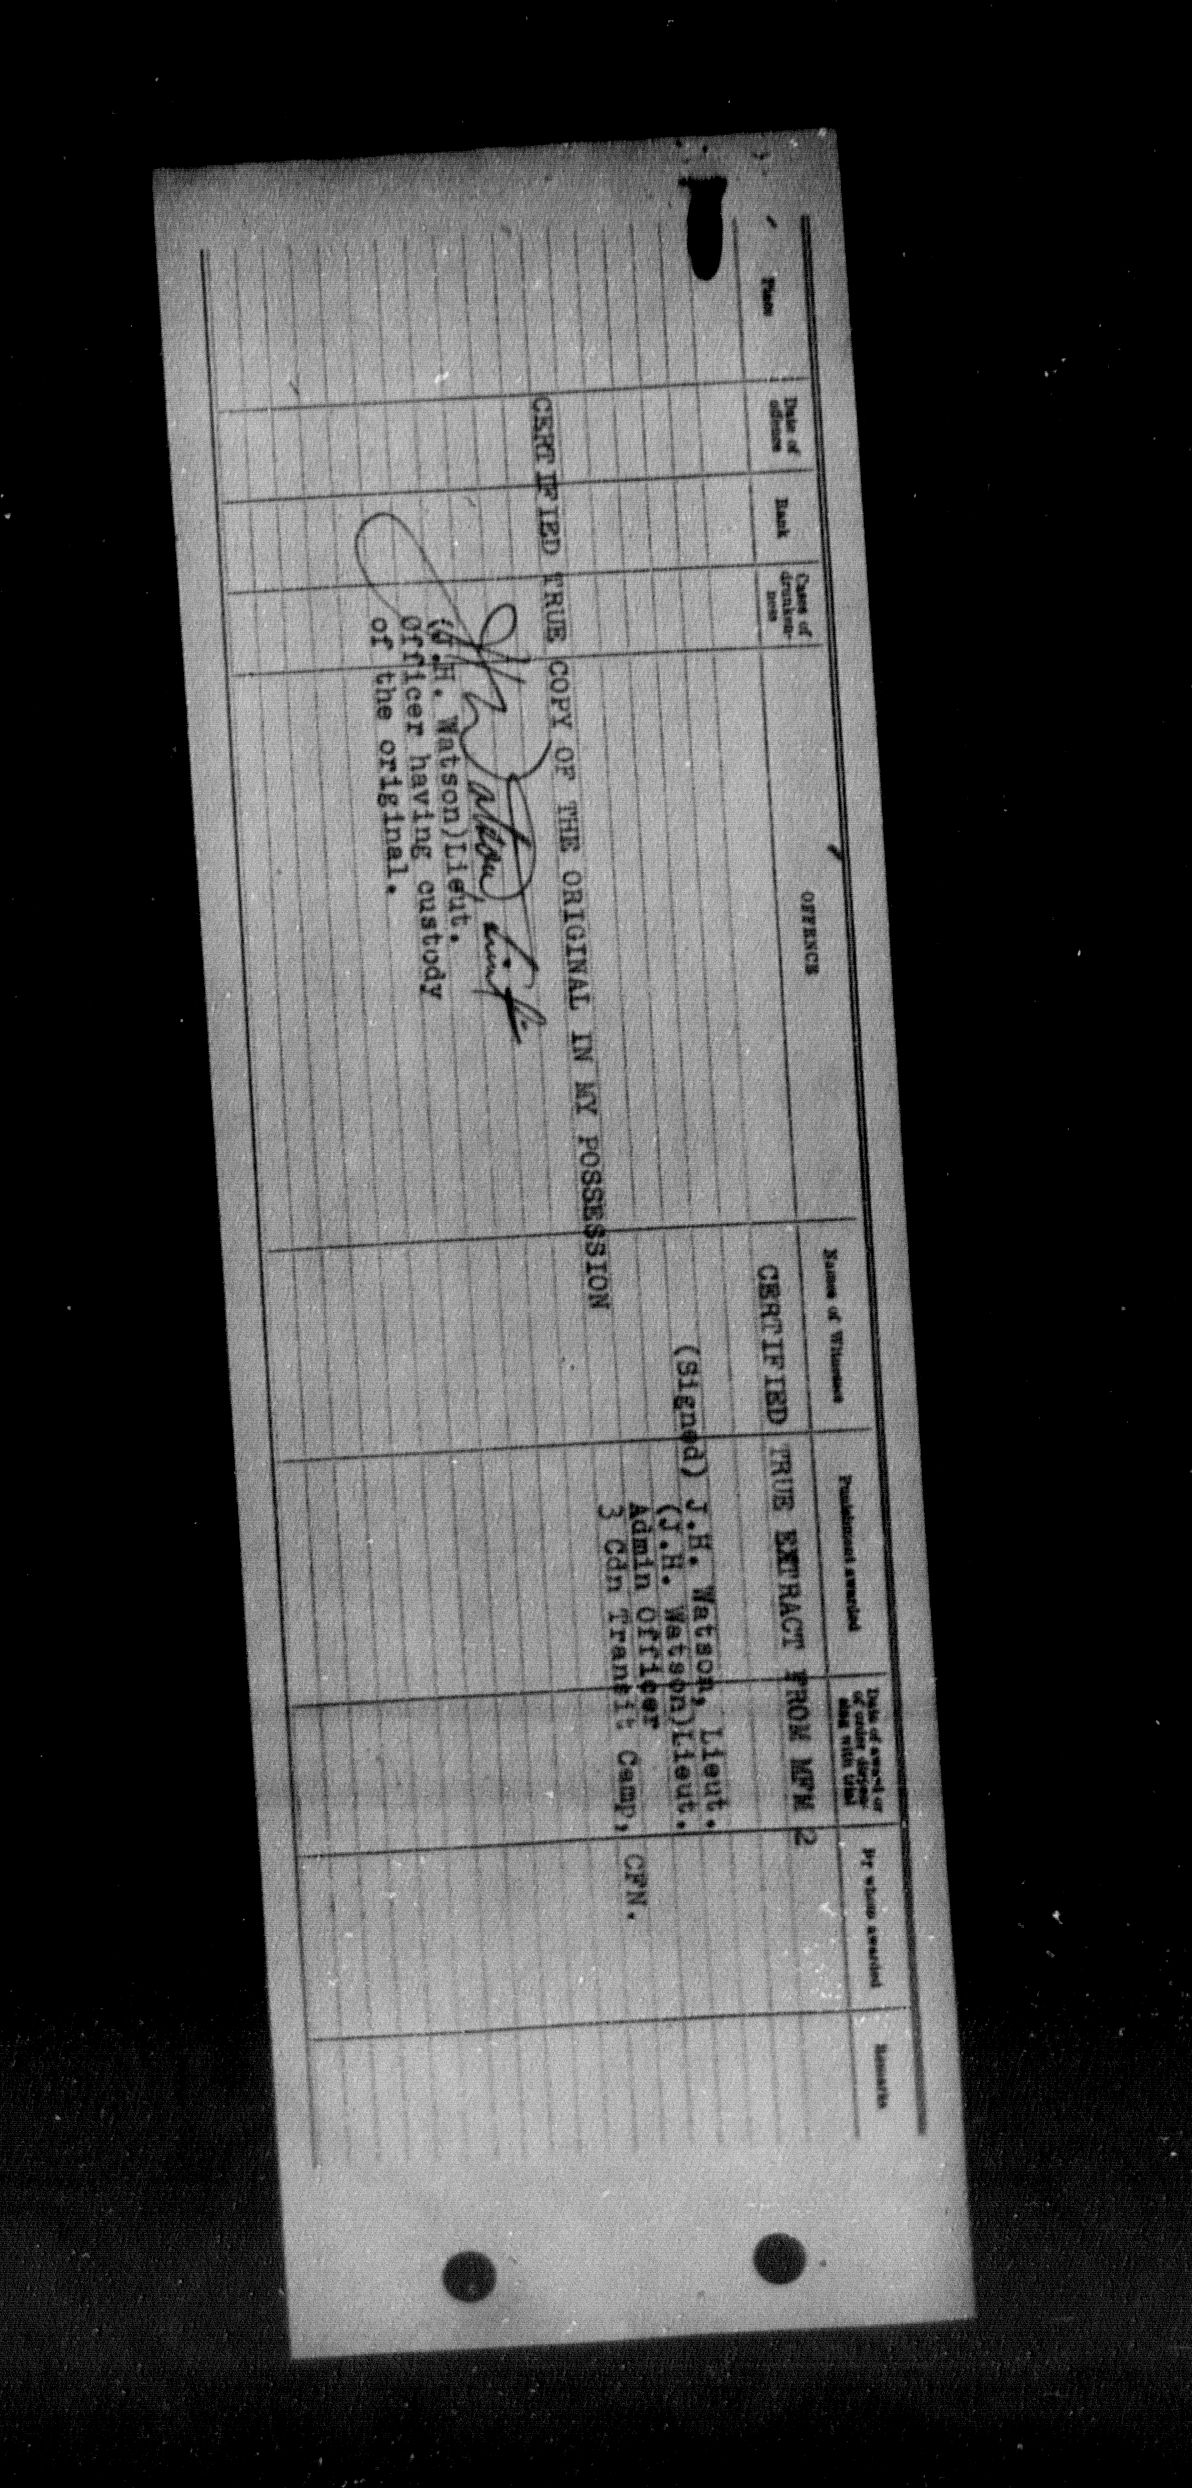 Place
Date of offence
Rank
Cases of drunken-ness
OFFENCE
Names of Witnesses
Punishment awarded
Date of award or of order dispens-ing with trial
By whom awarded
Remarks
CERTIFIED TRUE EXTRACT FROM MFM 2
(Signed) J.H. Watson, Lieut.
(J.H. Watson)Lieut.
Admin Officer
3 Cdn Transit Camp, CFN.
CERTIFIED TRUE COPY OF THE ORIGINAL IN MY POSSESSION
JHWatson, Lieut
(J.H. Watson)Lieut.
Officer having custody
of the original.